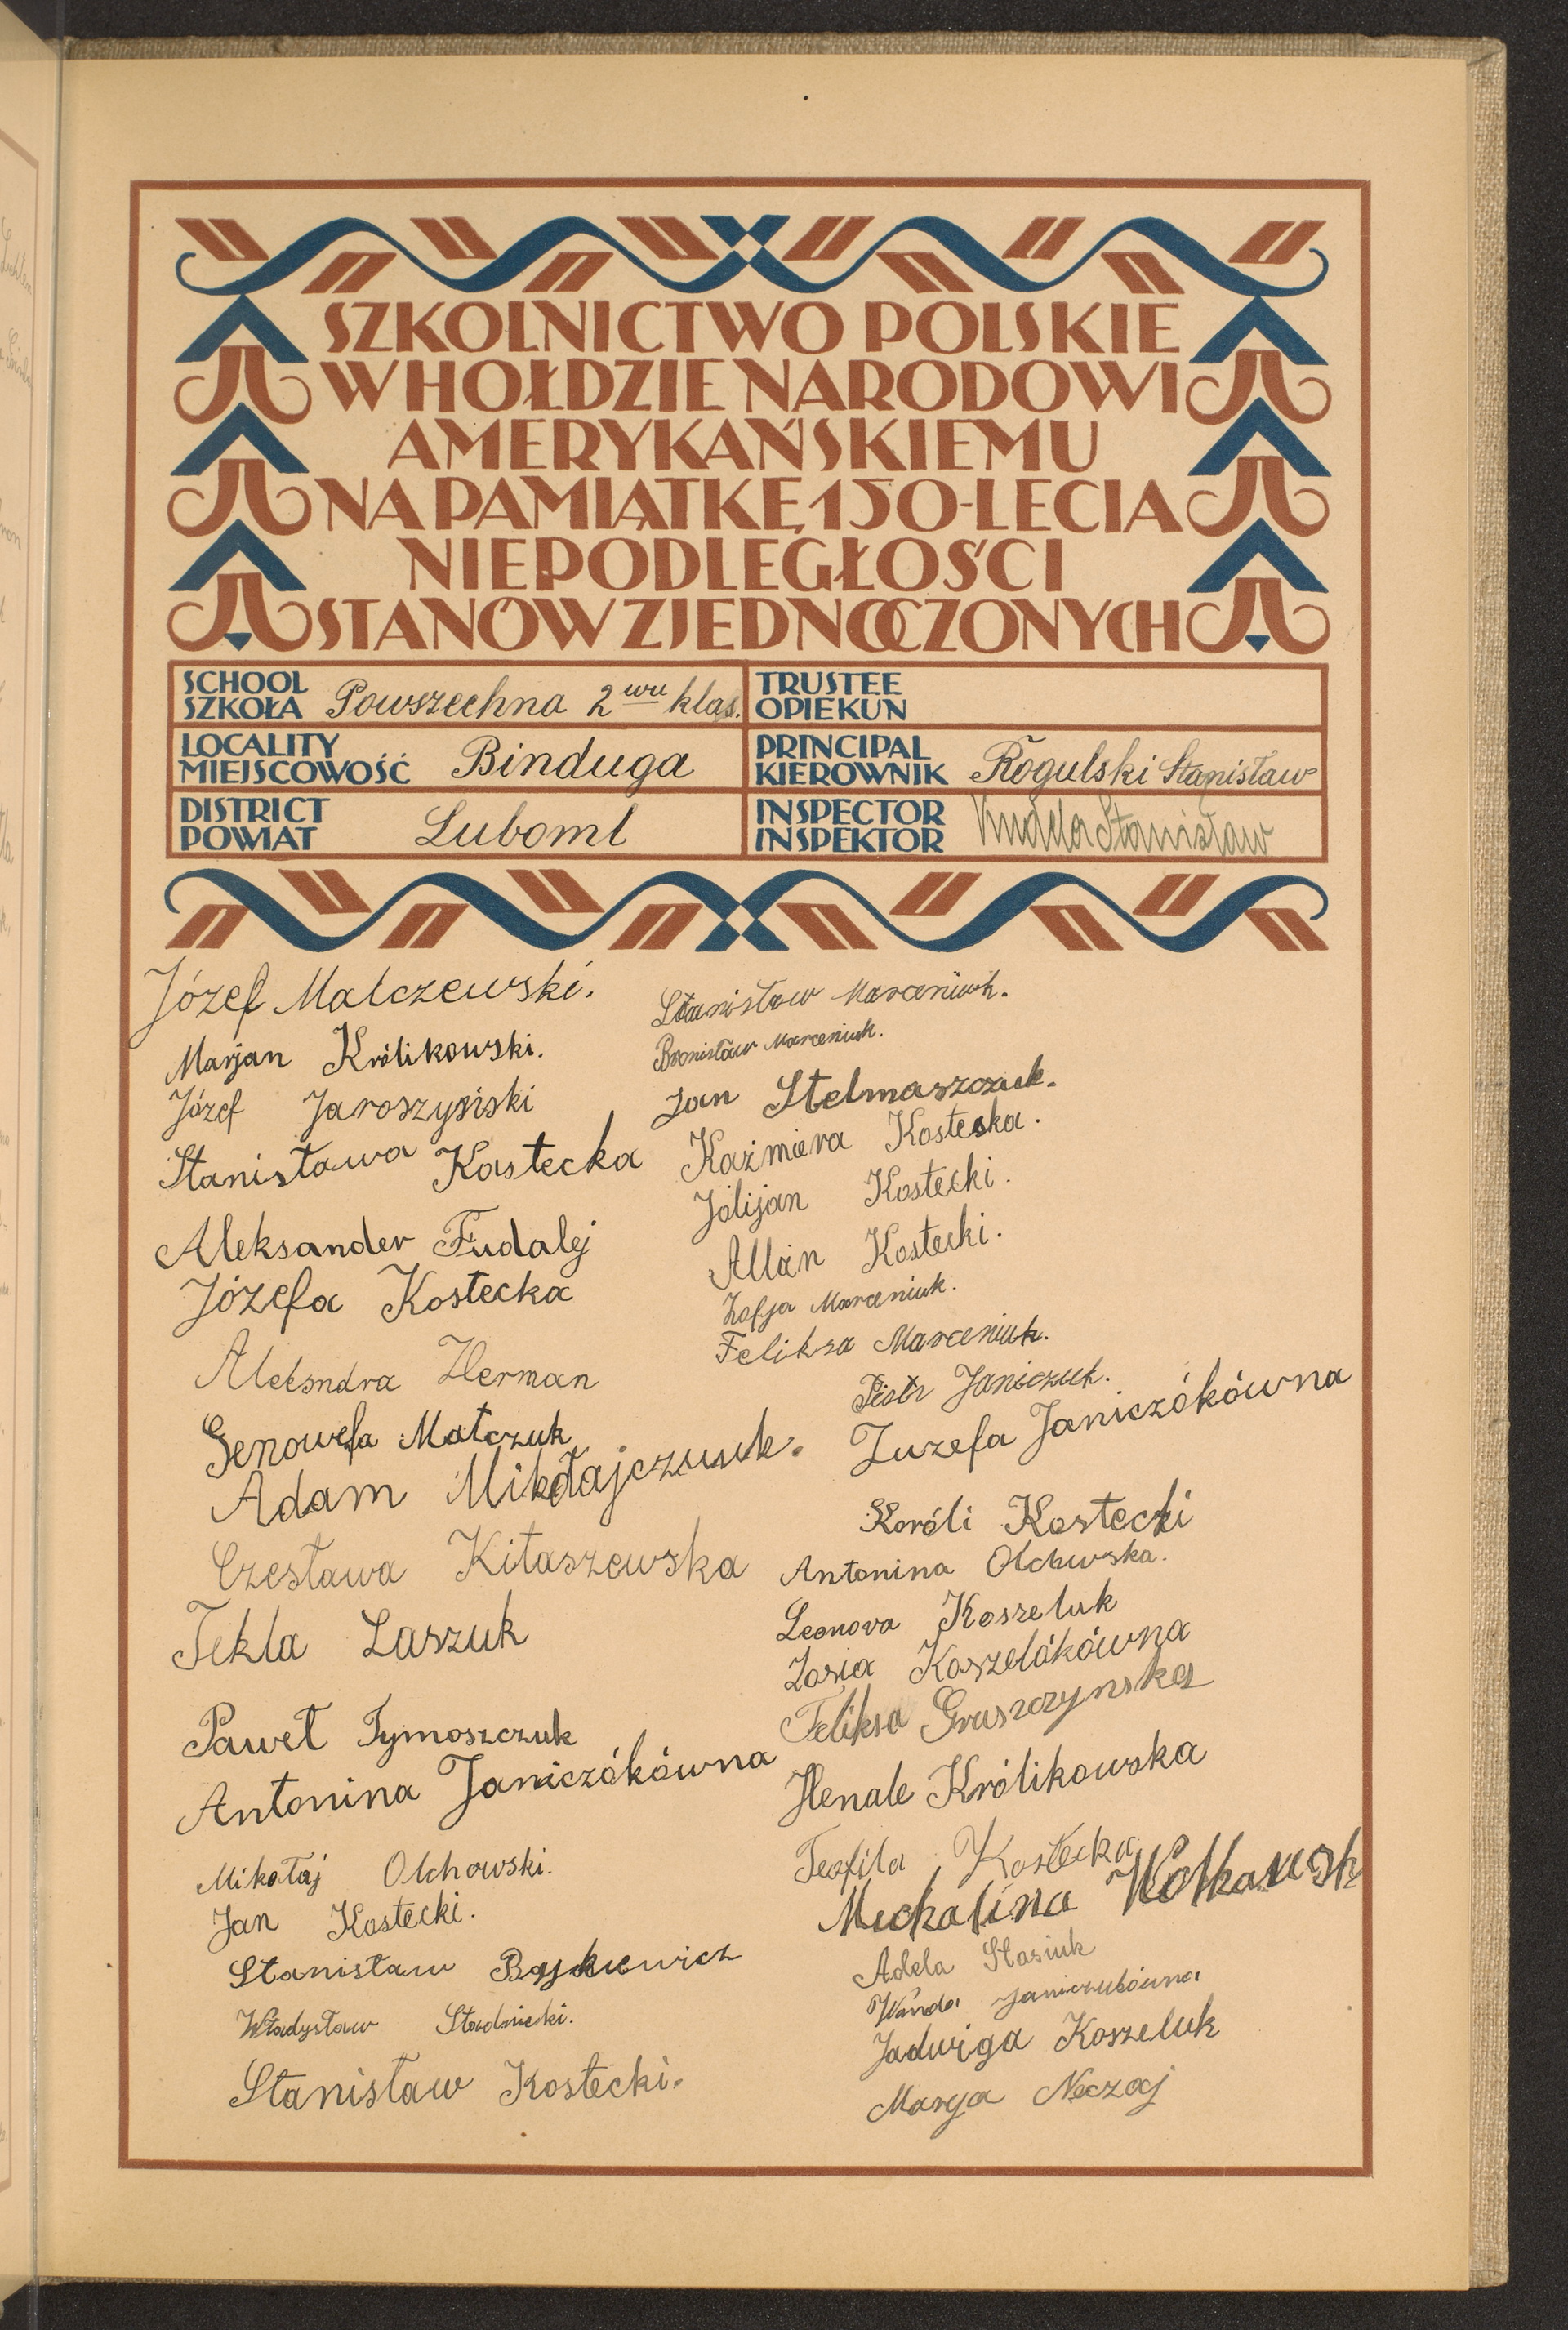 SZKOLNICTWO POLSKIE
W HOŁDZIE NARODOWI
AMERYKAŃSKIEMU
NA PAMIĄTKĘ 150-LECIA
NIEPODLEGŁOŚCI
STANÓW ZJEDNOCZONYCH
SCHOOL
SZKOŁA
Powszechna 2 wu klas.
TRUSTEE
OPIEKUN
LOCALITY
MIEJSCOWOŚĆ
Binduga
PRINCIPAL
KIEROWNIK
Rogulski Stanisław
DISTRICT
POWIAT
Luboml
INSPECTOR
INSPEKTOR
Stanisław
Józef Malczewski.
Marjan Królikowski.
Józef Jaroszyński
Stanisława Kostecka
Aleksander Fudalej
Józefa Kostecka
Aleksndra Herman
Genowefa Matczuk
Adam Mikołajczuuk.
Czesława Kitaszewska
Tekla Laszuk
Paweł Tymoszczuk
Antonina Janiczókówna
Mikołaj Olchowski.
Jan Kostecki.
Stanisław
Władysław Stadnicki.
Stanisław Kostecki.
Stanisław Marceniuk.
Bronisław Marceniuk.
Jan Stelmaszczuk.
Kaźmiera Kosteska.
Jólijan Kostecki.
Allan Kostecki.
Zofja Marceniuk.
Feliksa Marceniuk.
Piotr Janiczuk.
Juzefa Janiczókówna
Karóli Kostecki
Antonina
Leonora Koszeluk
Zosia Koszelókówna
Feliksa Gruszczynska
Henale Królikowska
Teofila Kostecka
Michalina
Adela Stasiuk
Wanda Janiczukówna
Jadwiga Koszeluk
Marya Neczaj